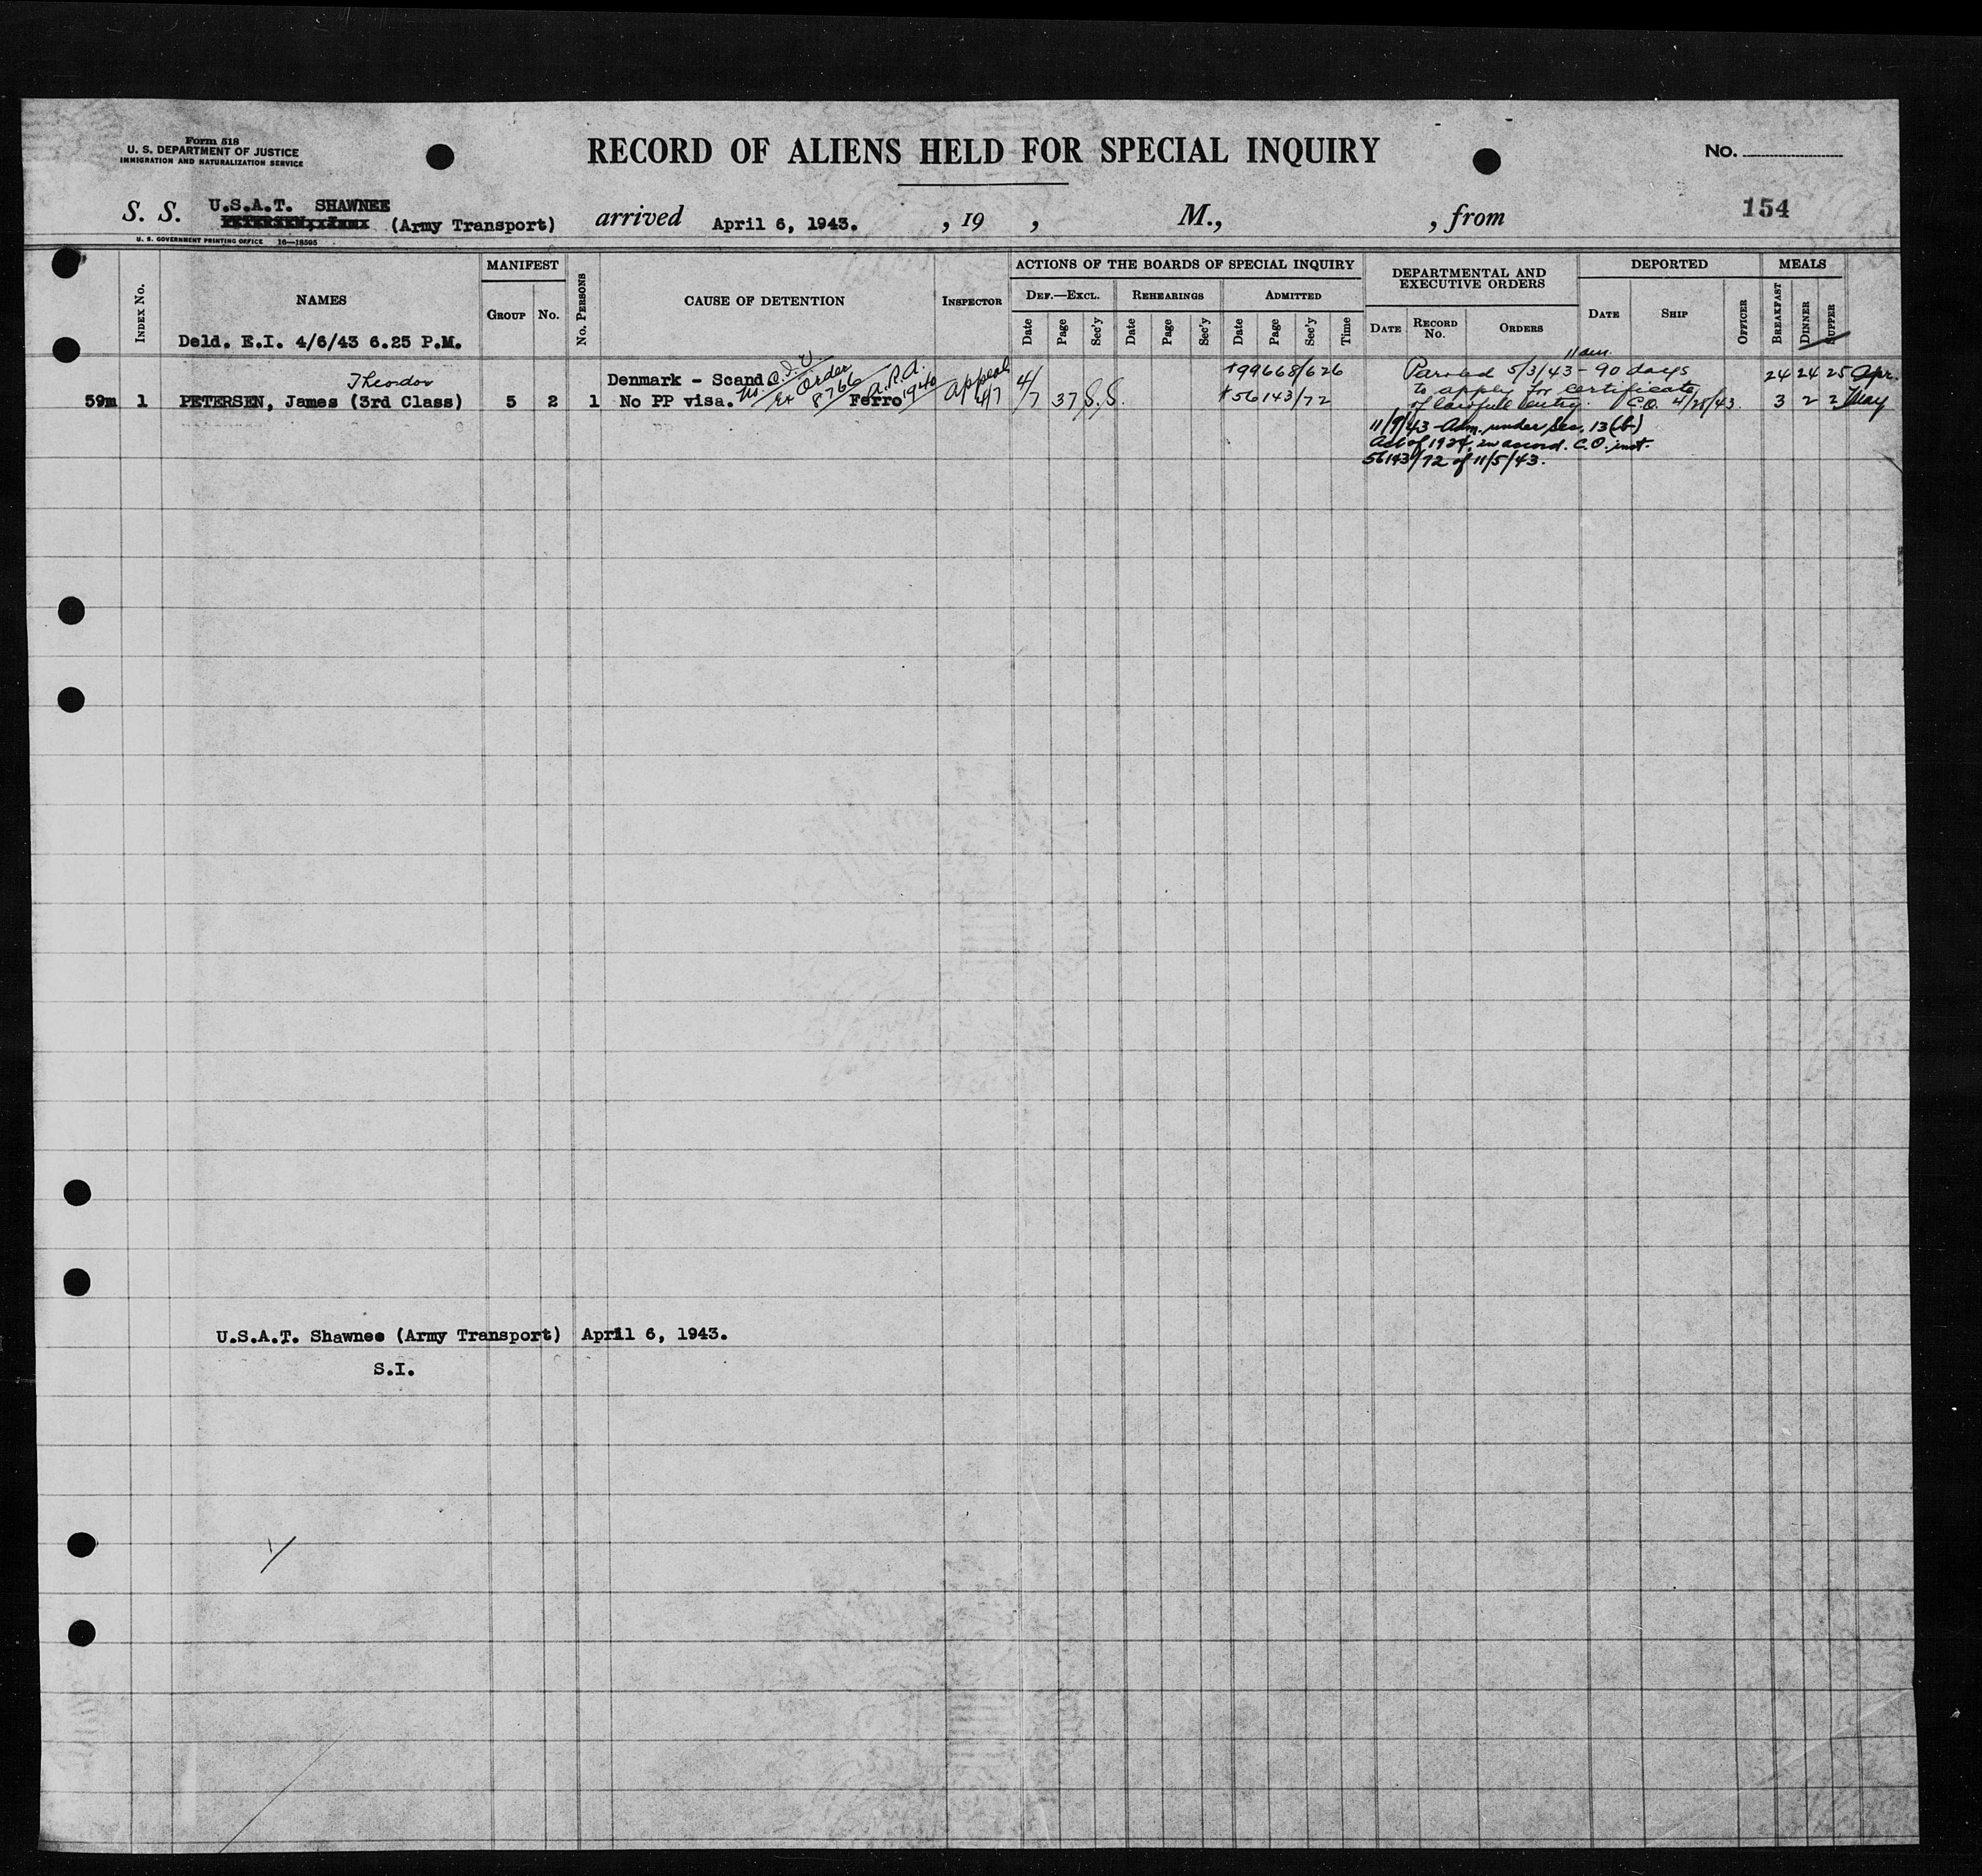 Form 518
U. S. DEPARTMENT OF JUSTICE
IMMIGRATION AND NATURALIZATION SERVICE
RECORD OF ALIENS HELD FOR SPECIAL INQUIRY
No.
154
S. S. U.S.A.T. SHAWNEE
(Army Transport) arrived April 6, 1943. , 19 , M., , from
U. S. GOVERNMENT PRINTING OFFICE 16—18595
INDEX No.
NAMES
Deld. E.I. 4/6/43 6.25 P.M.
MANIFEST
GROUP
No.
No. PERSONS
CAUSE OF DETENTION
INSPECTOR
ACTIONS OF THE BOARDS OF SPECIAL INQUIRY
DEF.—EXCL.
REHEARINGS
ADMITTED
Date Page Sec'y Date Page Sec'y Date Page Sec'y Time
DEPARTMENTAL AND
EXECUTIVE ORDERS
DATE
RECORD
No.
ORDERS
DEPORTED
DATE
SHIP
OFFICER
MEALS
BREAKFAST
DINNER
SUPPER
59m 1 Theodor
PETERSEN, James (3rd Class) 5 2 1
Denmark - Scand.
No PP visa.
No. Q.I.V.
Ex Order
8766
A.R.A.
1940
Ferro
Appeal
4/7
4/7 37 S.S.
99668/626
56143/72
11 am.
Paroled 5/3/43 - 90 days
to apply for certificate
of lawfull entry. C.O. 4/28/43.
11/9/43 Adm. under Sec. 13(b)
Act of 1924, in accord. C.O. inst.
56143/72 of 11/5/43.
24 24 25 Apr.
3 2 2 May
U.S.A.T. Shawnee (Army Transport) April 6, 1943.
S.I.